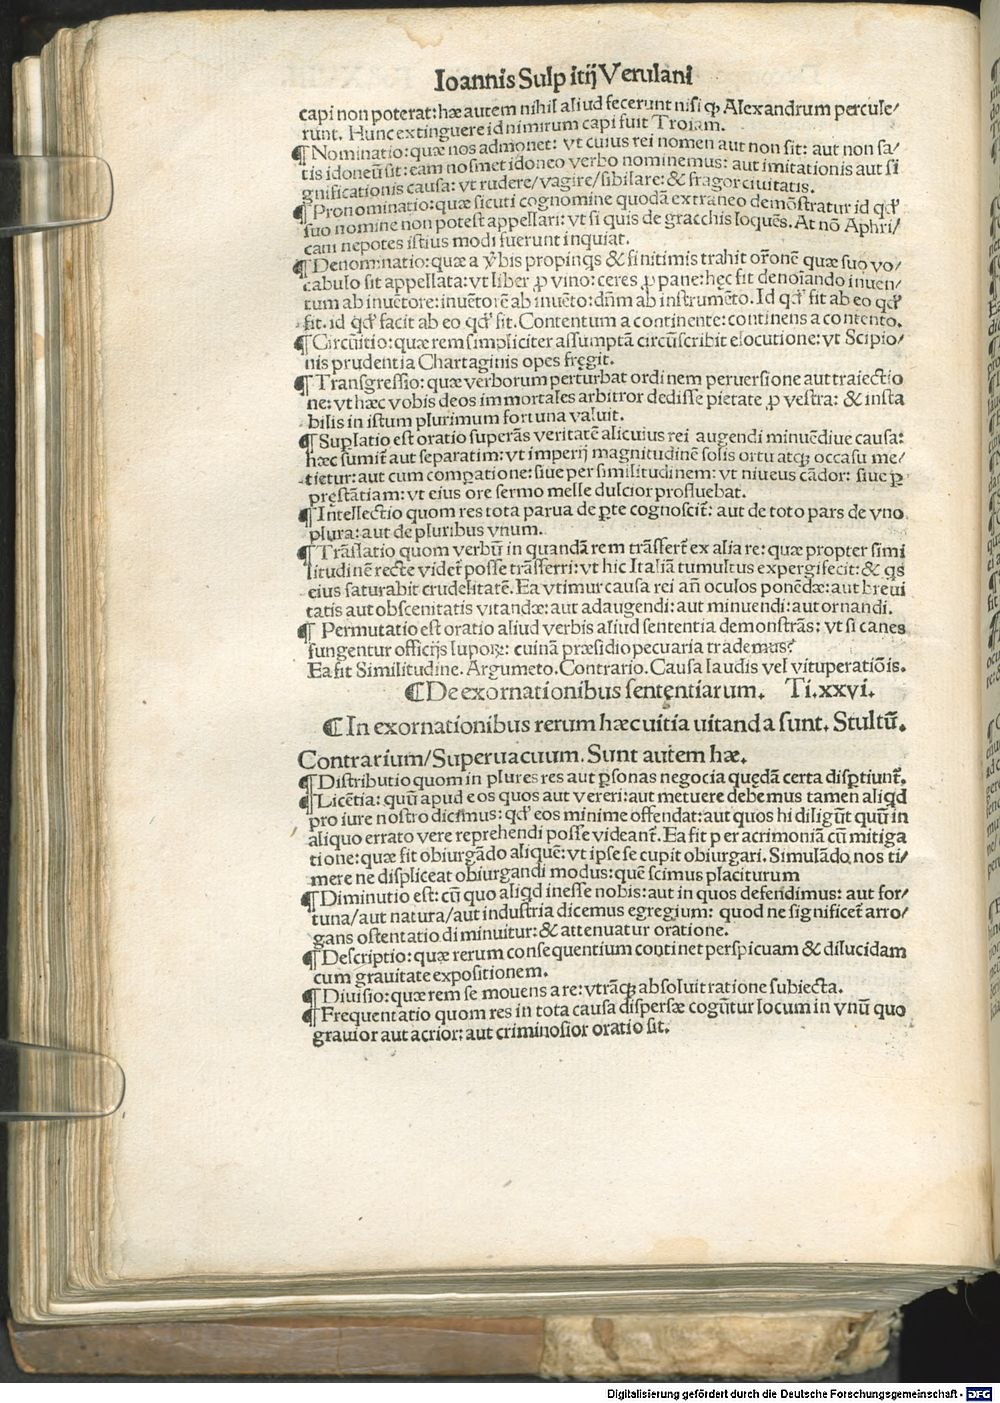 Ioannis Sulpitij Verulani
capi non poterat: hæ autem nihil aliud fecerunt nisi ꝙ Alexandrum percule/
runt. Hunc extinguere id nimirum capi fuit Troiam.
¶ Nominatio: quæ nos admonet: vt cuius rei nomen aut non sit: aut non sa/
tis idoneū sit: eam nosmet idoneo verbo nominemus: aut imitationis aut si
gnificationis causa: vt rudere/vagire/sibilare: & fragor ciuitatis.
¶ Pronominatio: quæ sicuti cognomine quodā extraneo demōstratur id qđ
suo nomine non potest appellari: vt si quis de gracchis loquēs. At nō Aphri/
cani nepotes istius modi fuerunt inquiat.
¶ Denominatio: quæ a v̄bis propinqs & finitimis trahit orōnē quæ suo vo/
cabulo sit appellata: vt liber ꝓ vino: ceres ꝓ pane: hęc fit denoīando inuen/
tum ab inuētore: inuētorē ab inuēto: dn̄m ab instrumēto. Id qđ fit ab eo qđ
fit. id qđ facit ab eo qđ fit. Contentum a continente: continens a contento.
¶ Circuitio: quæ rem simpliciter assumptā circūscribit elocutione: vt Scipio/
nis prudentia Chartaginis opes fręgit.
¶ Transgressio: quæ verborum perturbat ordinem peruersione aut traiectio
ne: vt hæc vobis deos immortales arbitror dedisse pietate ꝓ vestra: & insta
bilis in istum plurimum fortuna valuit.
¶ Suplatio est oratio superās veritatē alicuius rei augendi minuēdiue causa:
hæc sumit̄ aut separatim: vt imperij magnitudinē solis ortu atqꝫ occasu me/
tietur: aut cum compatione: siue per similitudinem: vt niueus cādor: siue ꝑ
prestātiam: vt eius ore sermo melle dulcior profluebat.
¶ Intellectio quom res tota parua de ꝑte cognoscit̄: aut de toto pars de vno
plura: aut de pluribus vnum.
¶ Trāslatio quom verbū in quandā rem trāsfert̄ ex alia re: quæ propter simi
litudinē recte videt̄ posse trāsferri: vt hic Italiā tumultus expergifecit: & qs
eius saturabit crudelitatē. Ea vtimur causa rei an̄ oculos ponēdæ: aut breui
tatis aut obscenitatis vitandæ: aut adaugendi: aut minuendi: aut ornandi.
¶ Permutatio est oratio aliud verbis aliud sententia demonstrās: vt si canes
fungentur officijs lupoꝝ: cuinā præsidio pecuaria trademus?
Ea fit Similitudine. Argumeto. Contrario. Causa laudis vel vituperatiōis.
¶ De exornationibus sentęntiarum. Ti.xxvi.
¶ In exornationibus rerum hæc uitia uitanda sunt. Stultū.
Contrarium/Superuacuum. Sunt autem hæ.
¶ Distributio quom in plures res aut ꝑsonas negocia quędā certa disꝑtiunt̄.
¶ Licētia: quū apud eos quos aut vereri: aut metuere debemus tamen aliqd
pro iure nostro dicimus: qđ eos minime offendat: aut quos hi diligūt quū in
aliquo errato vere reprehendi posse videant̄. Ea fit per acrimoniā cū mitiga
tione: quæ fit obiurgādo aliquē: vt ipse se cupit obiurgari. Simulādo nos ti/
mere ne displiceat obiurgandi modus: quē scimus placiturum
¶ Diminutio est: cū quo aliqd inesse nobis: aut in quos defendimus: aut for/
tuna/aut natura/aut industria dicemus egregium: quod ne significet̄ arro/
gans ostentatio diminuitur: & attenuatur oratione.
¶ Descriptio: quæ rerum consequentium continet perspicuam & dilucidam
cum grauitate expositionem.
¶ Diuisio: quæ rem semouens a re: vtrāqꝫ absoluit ratione subiecta.
¶ Frequentatio quom res in tota causa dispersæ cogūtur locum in vnū quo
grauior aut acrior: aut criminosior oratio sit.
Digitalisierung gefördert durch die Deutsche Forschungsgemeinschaft - DFG